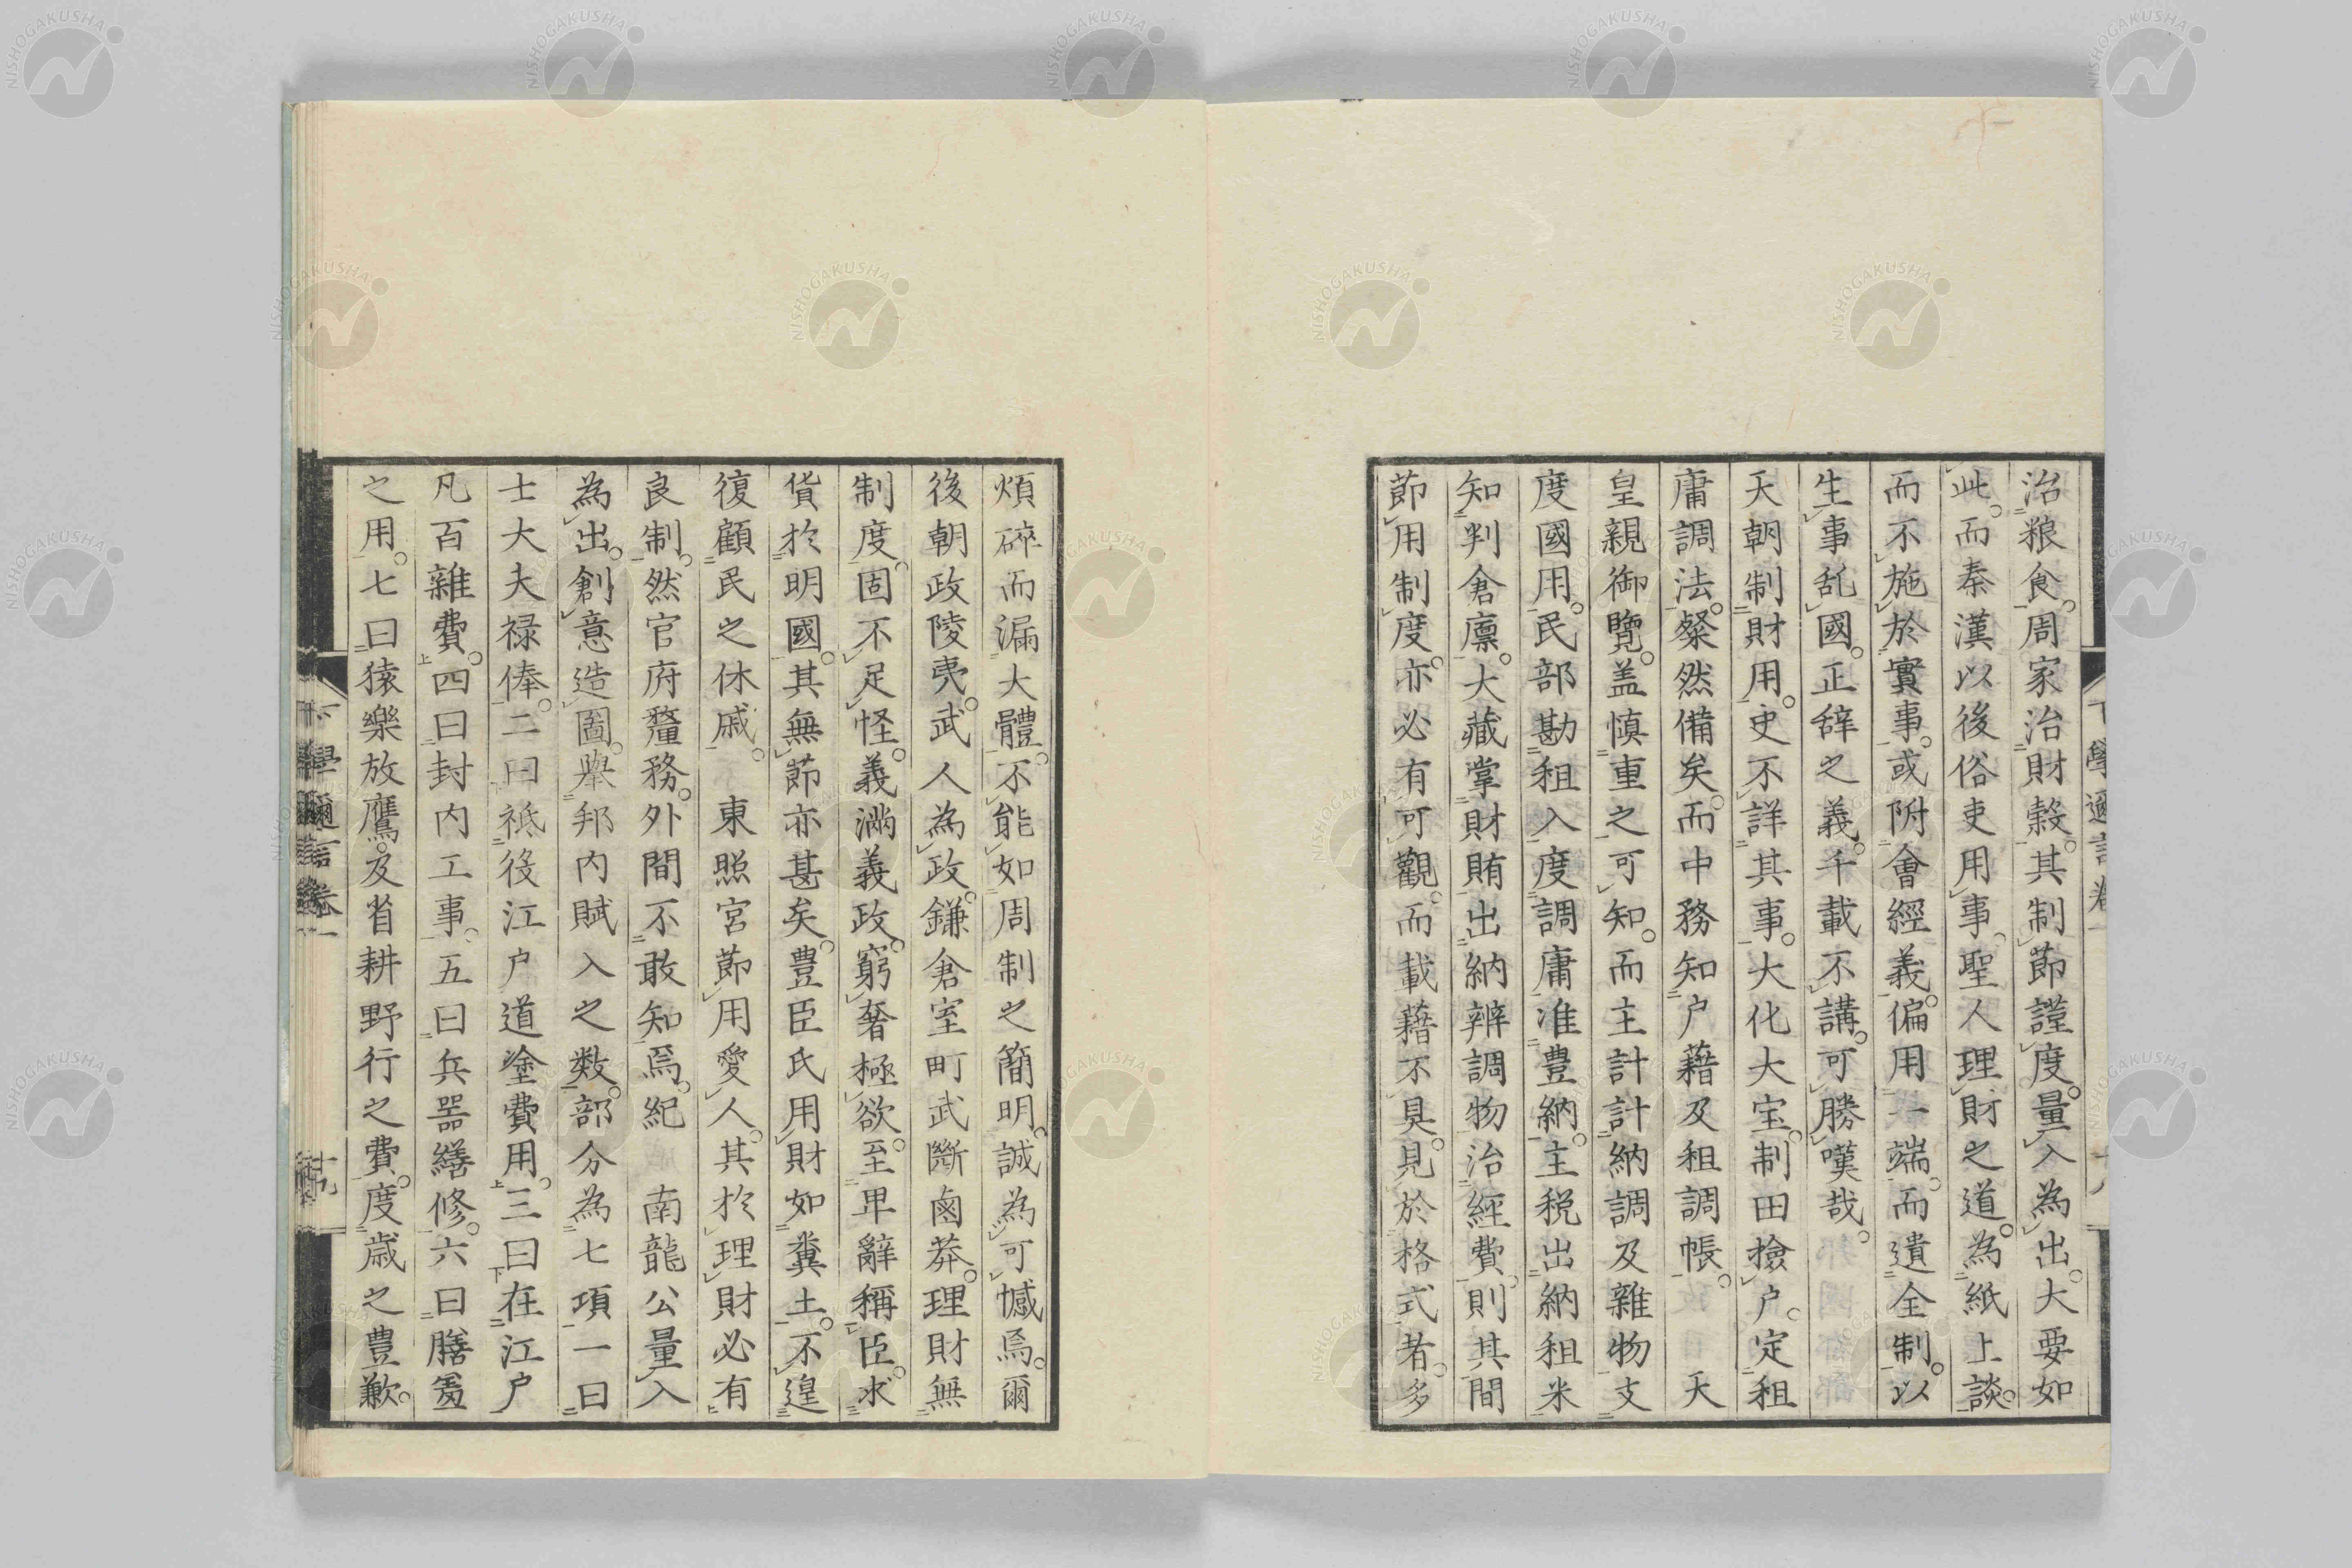 治粮食。周家治財穀。其制節謹度。量入為出。大要如
此。而秦漢以後俗吏用事。聖人理財之道。為紙上談。
而不施於實事。或附會經義。偏用一端。而遺全制。以
生事乱國。正辞之義。千載不講。可勝嘆哉。
天朝制財用。史不詳其事。大化大宝。制田撿户。定租
庸調法。粲然備矣。而中務知户藉及租調帳。 天
皇親御覽。盖慎重之可知。而主計計納調及雜物支
度國用。民部勘租入度調庸准豊納。主税出納租米
知判倉廪。大藏掌財賄出納辨調物治經費。則其間
節用制度。亦必有可觀。而載藉不具。見於格式者。多
煩碎而漏大體。不能如周制之簡明。誠為可憾焉。爾
後朝政陵夷。武人為政。鎌倉室町武斷鹵莽。理財無
制度。固不足怪。義満義政。窮奢極欲。至卑辭稱臣。求
貨於明國。其無節亦甚矣。豊臣氏用財如糞土。不遑
復顧民之休戚。 東照宮節用愛人。其於理財必有
良制。然官府釐務。外間不敢知焉。紀 南龍公量入
為出。創意造圖。舉邦内賦入之数。部分為七項一曰
士大夫禄俸。二曰祗役江户道塗費用。三曰在江户
凡百雜費。四曰封内工事。五曰兵器繕修。六曰膳羞
之用。七曰猿樂放鷹。及省耕野行之費。度歳之豊歉。
下學邇言卷一